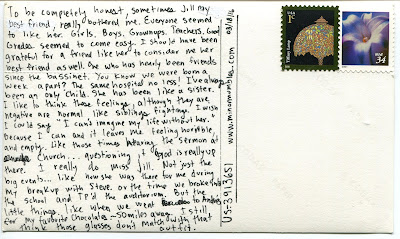 To be completely honest, sometimes Jill my
best friend, really bothered me. Everyone seemed
to like her. Girls, Boys, Grownups, Teachers, Good
Grades seemed to come easy. I should have been
grateful for a friend like her to consider me her
best friend as well. She who has nearly been friends
since the bassinet. You know we were born a
week apart? The same hospital no less! I've always
been an only child. She has been like a sister.
I like to think these feelings, although they are
negative are normal like siblings fighting. I wish
I could say "I can't imagine my life without her."
because I can and it leaves me feeling horrible,
and empty. Like those times hearing the sermon at
Church... questioning if God is really up
there. I really do miss Jill. Not just the
big events... like how she was there for me during
my breakup with Steve. or the time we broke into
the school and TP'd the auditorium. But the
little things, like when we went to Andies
for my favorite Chocolates - 50 miles away. I still
think those glasses don't match with that
outfit.
www.minormumbles.com
03/18/16
US-3913651
Tiffany Lamp
USA
1¢
USA
34